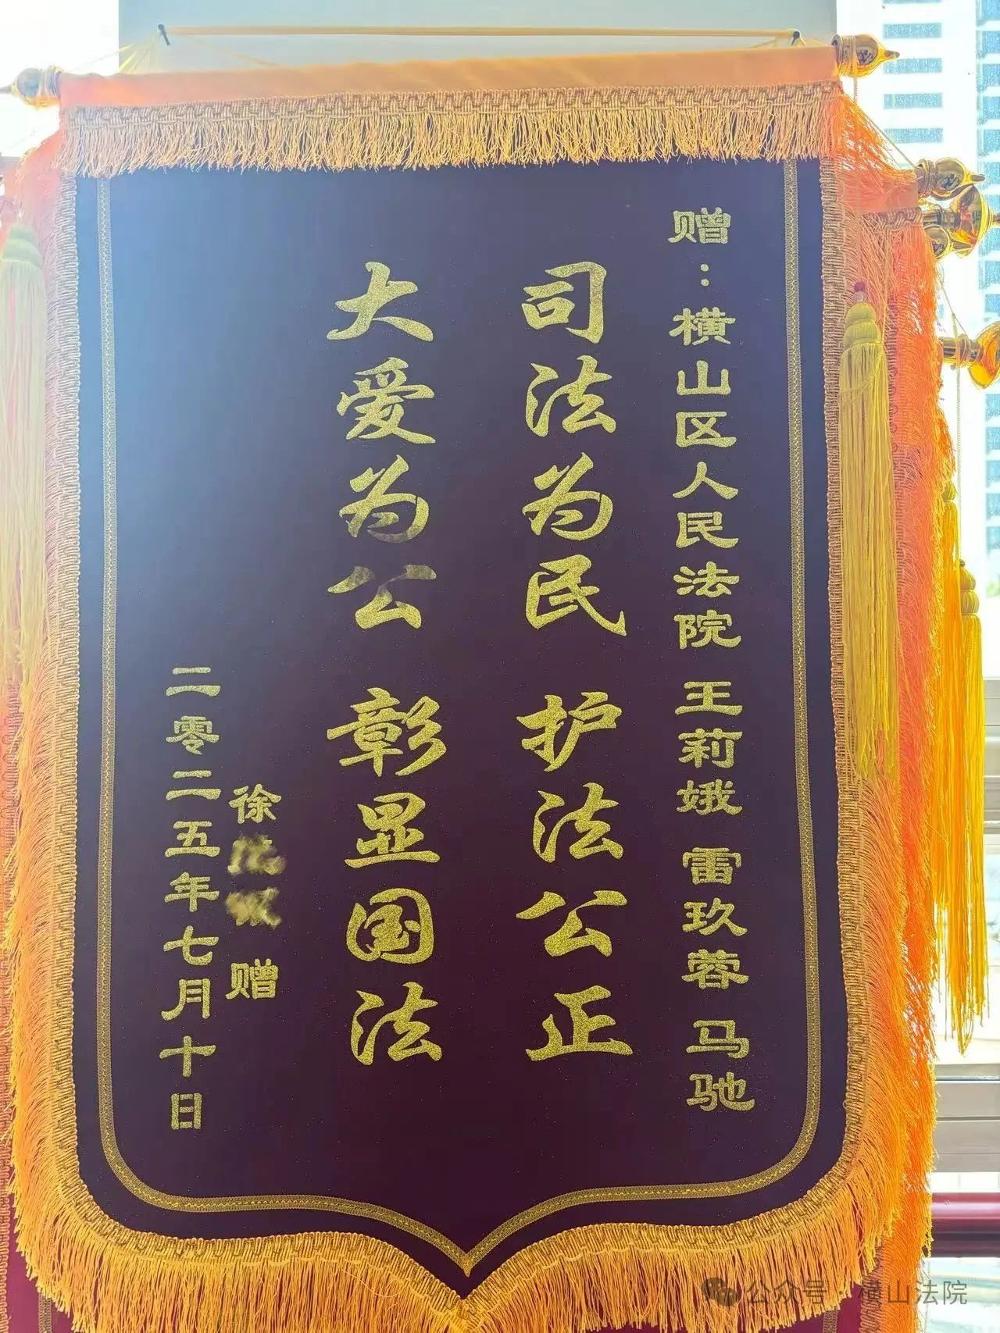 赠：横山区人民法院 王莉娥 雷玖蓉 马驰
司法为民 护法公正
大爱为公 彰显国法
徐 赠
二零二五年七月十日
公众号·横山法院